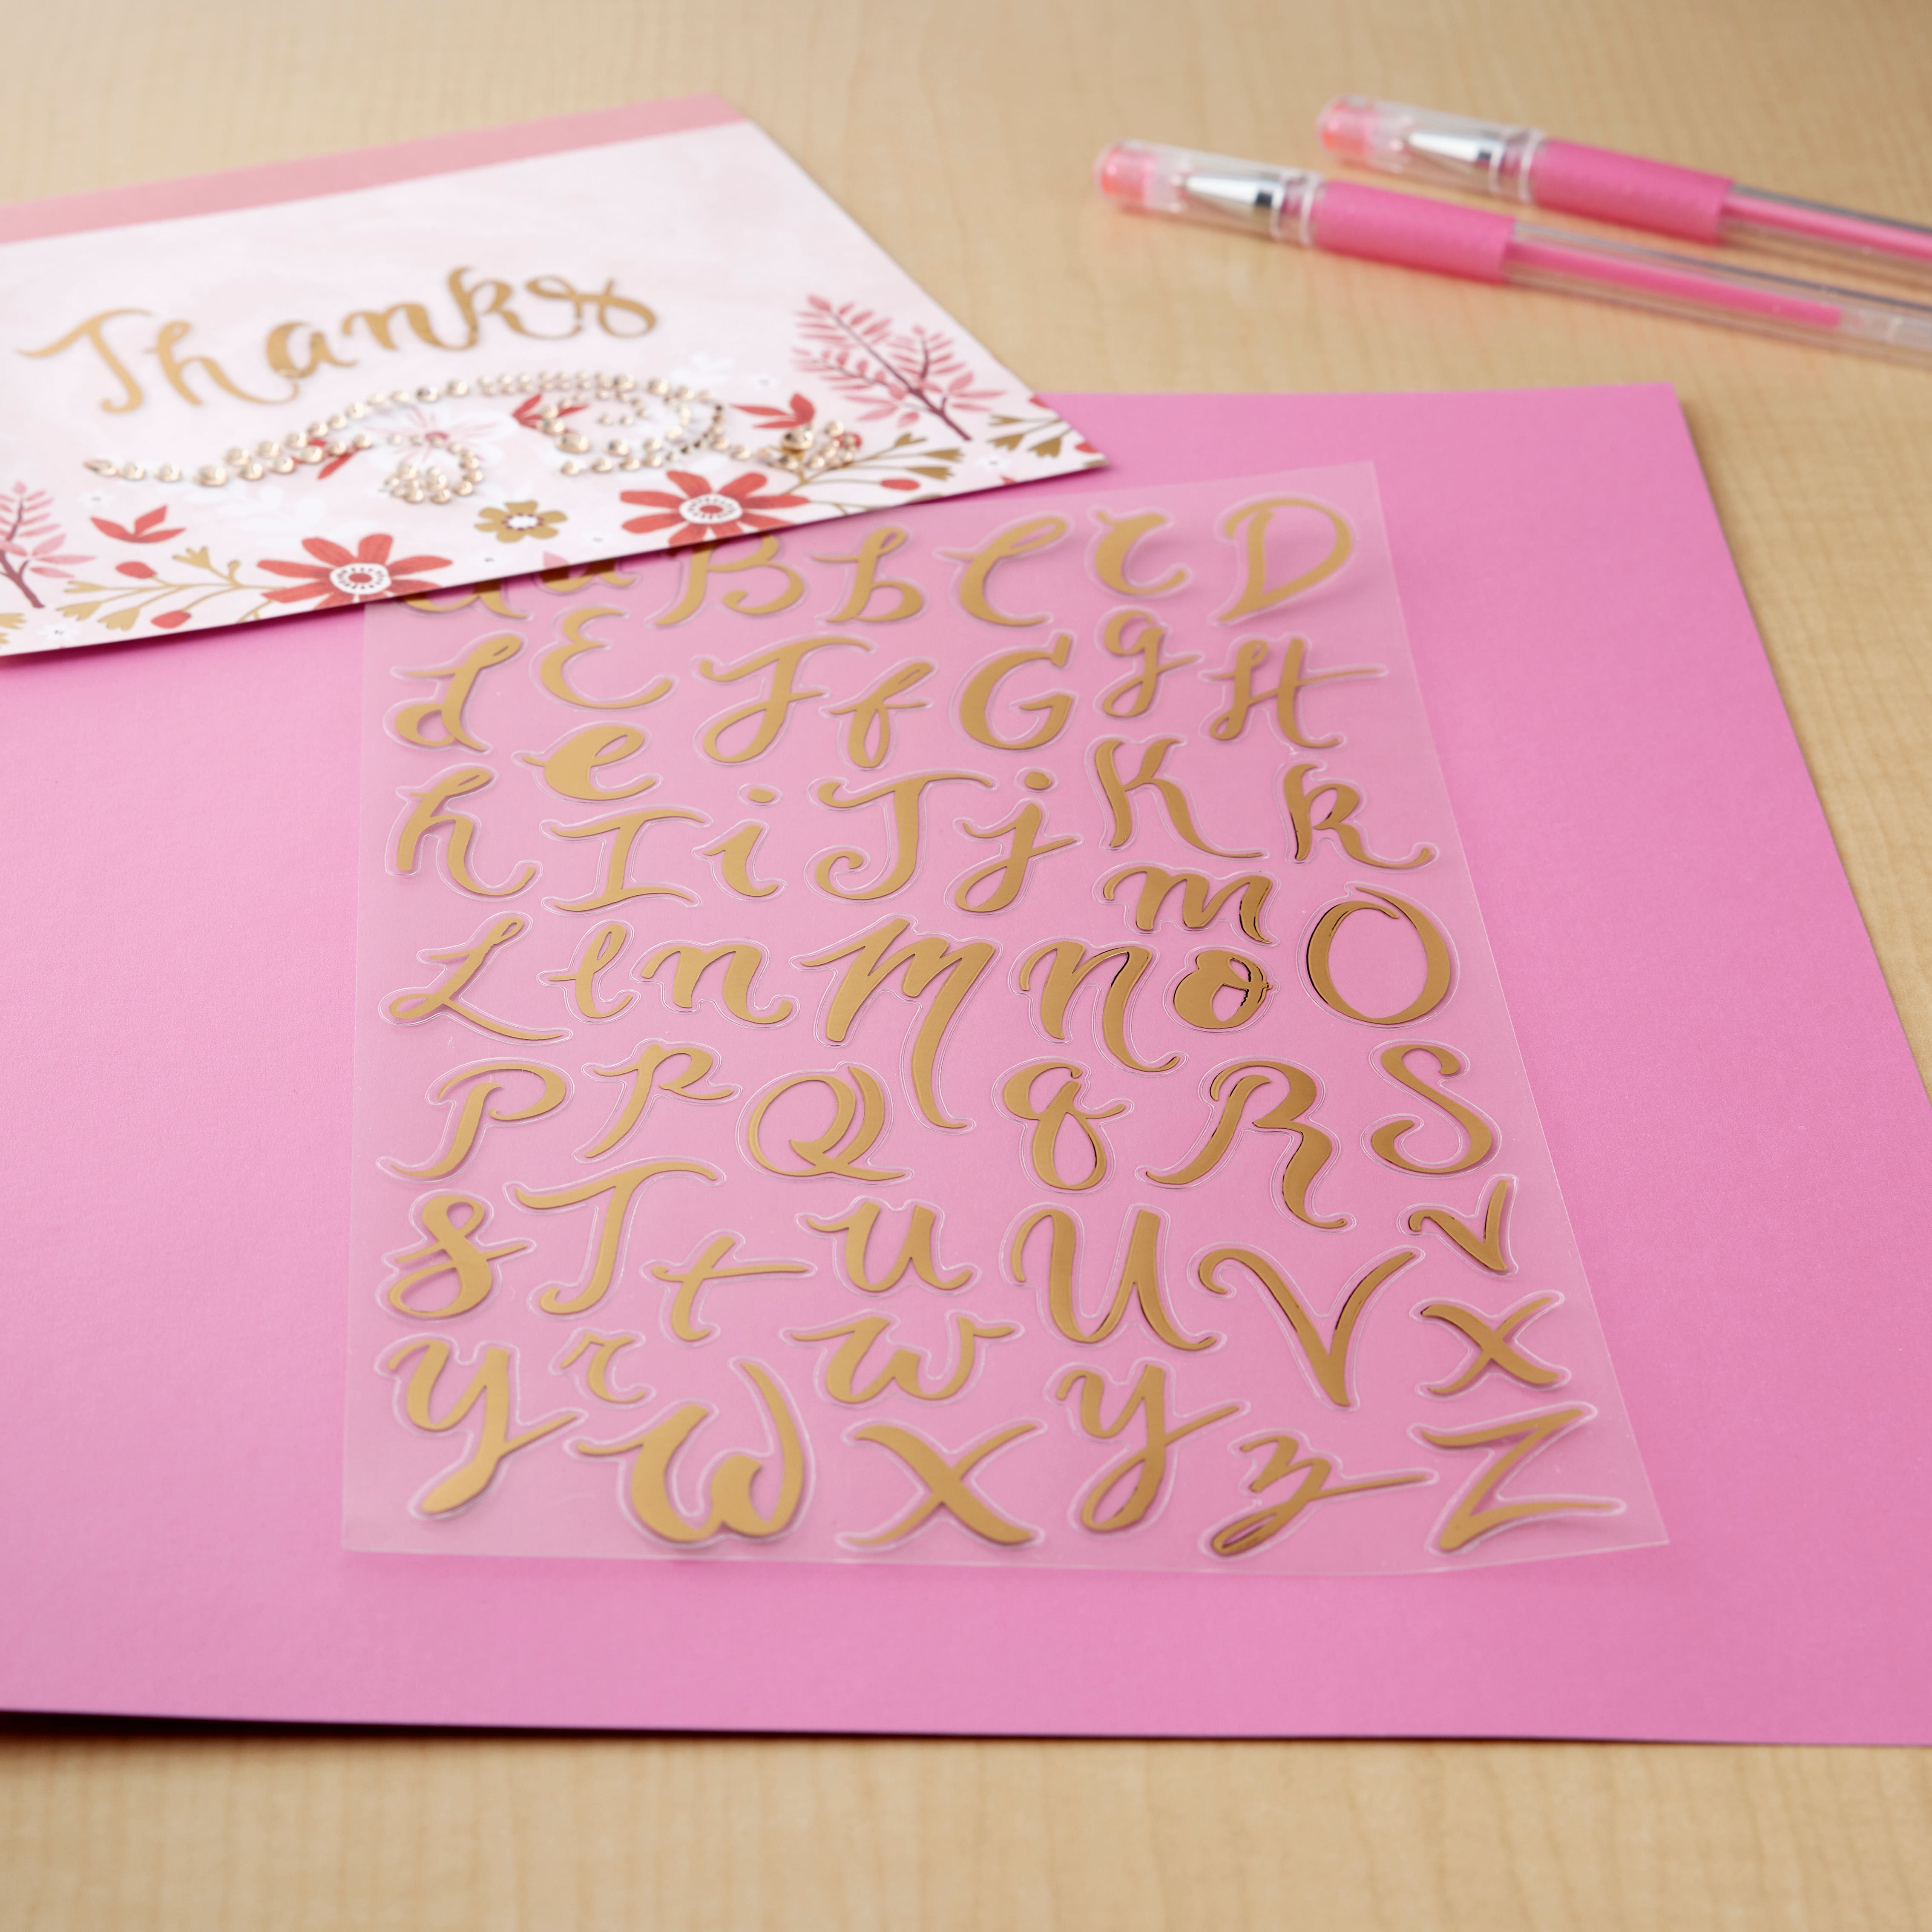 Thanks
a a B b C c D
d E F f G g H
h e I i J j K k
L l n M N m o O
P p Q q R S
s T t u U V v
y r W w X y z Z x